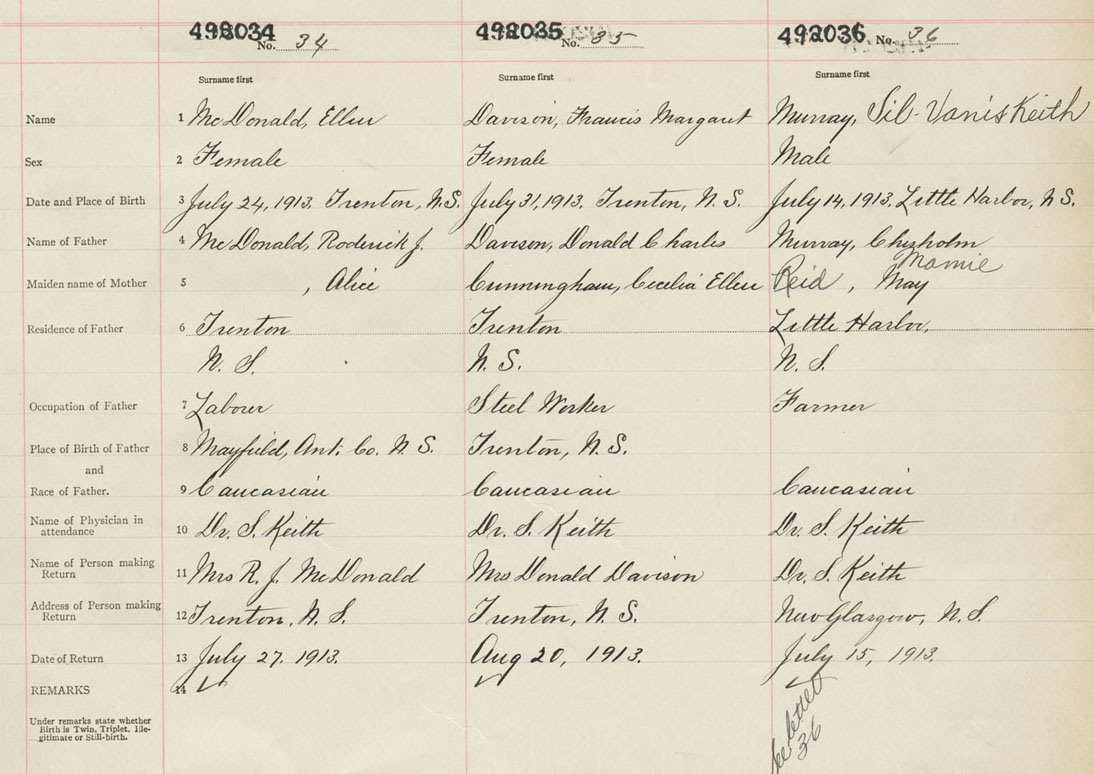 498034 No. 34 492035 No. 35 492036 No. 36
Surname first Surname first Surname first
Name 1 McDonald, Ellen Davison, Francis Margaret Murray, Keith
Sex 2 Female Female Male
Date and Place of Birth 3 July 24, 1913. Trenton, N.S. July 31, 1913. Trenton, N.S. July 14, 1913. Little Harbor, N.S.
Name of Father 4 McDonald, Roderick J. Davison, Donald Charles Murray, Chisholm
Mamie
Maiden name of Mother 5 , Alice Cunningham, Cecelia Ellen Reid , May
Residence of Father 6 Trenton Trenton Little Harbor,
N.S. N.S. N.S.
Occupation of Father 7 Laborer Steel Worker Farmer
Place of Birth of Father 8 Mayfield, Ant. Co. N.S. Trenton, N.S.
and
Race of Father. 9 Caucasian Caucasian Caucasian
Name of Physician in
attendance 10 Dr. S. Keith Dr. S. Keith Dr. S. Keith
Name of Person making
Return 11 Mrs R. J. McDonald Mrs Donald Davison Dr. S. Keith
Address of Person making
Return 12 Trenton, N.S. Trenton, N.S. New Glasgow, N.S.
Date of Return 13 July 27. 1913. Aug 20, 1913. July 15, 1913.
REMARKS 14
Under remarks state whether
Birth is Twin, Triplet, Ille-
gitimate or Still-birth.
See letter
36